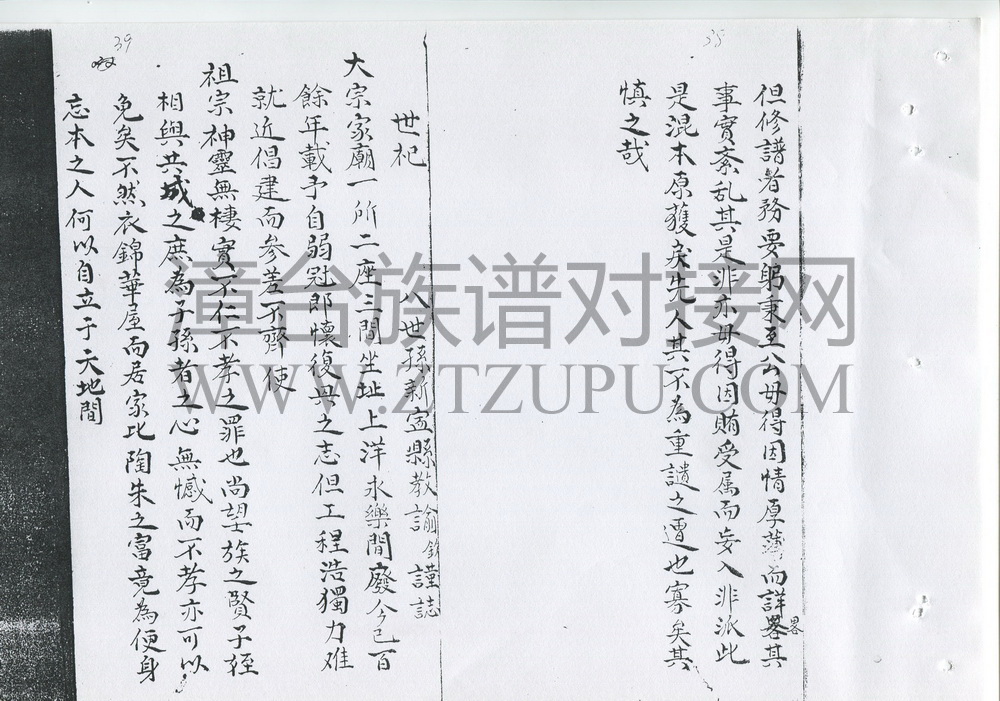 38
但修譜者務要躬秉至公毋得因情厚薄而詳畧其
畧
事實紊乱其是非亦毋得因賄受属而妄入非派此
是混本原獲戾先人其不為重譴之遭也寡矣其
慎之哉
39
世祀
八世孫新寍縣教諭欽謹誌
大宗家廟一所二座三間坐址上洋永樂間廢今已百
餘年載予自弱冠即懷復興之志但工程浩獨力难
就近倡建而參差不齊使
祖宗神靈無棲實不仁不孝之罪也尚望族之賢子姪
相與共成之庶為子孫者之心無憾而不孝亦可以
免矣不然衣錦華屋而居家比陶朱之富竟為便身
忘本之人何以自立于天地間
漳台族谱对接网
WWW.ZTZUPU.COM